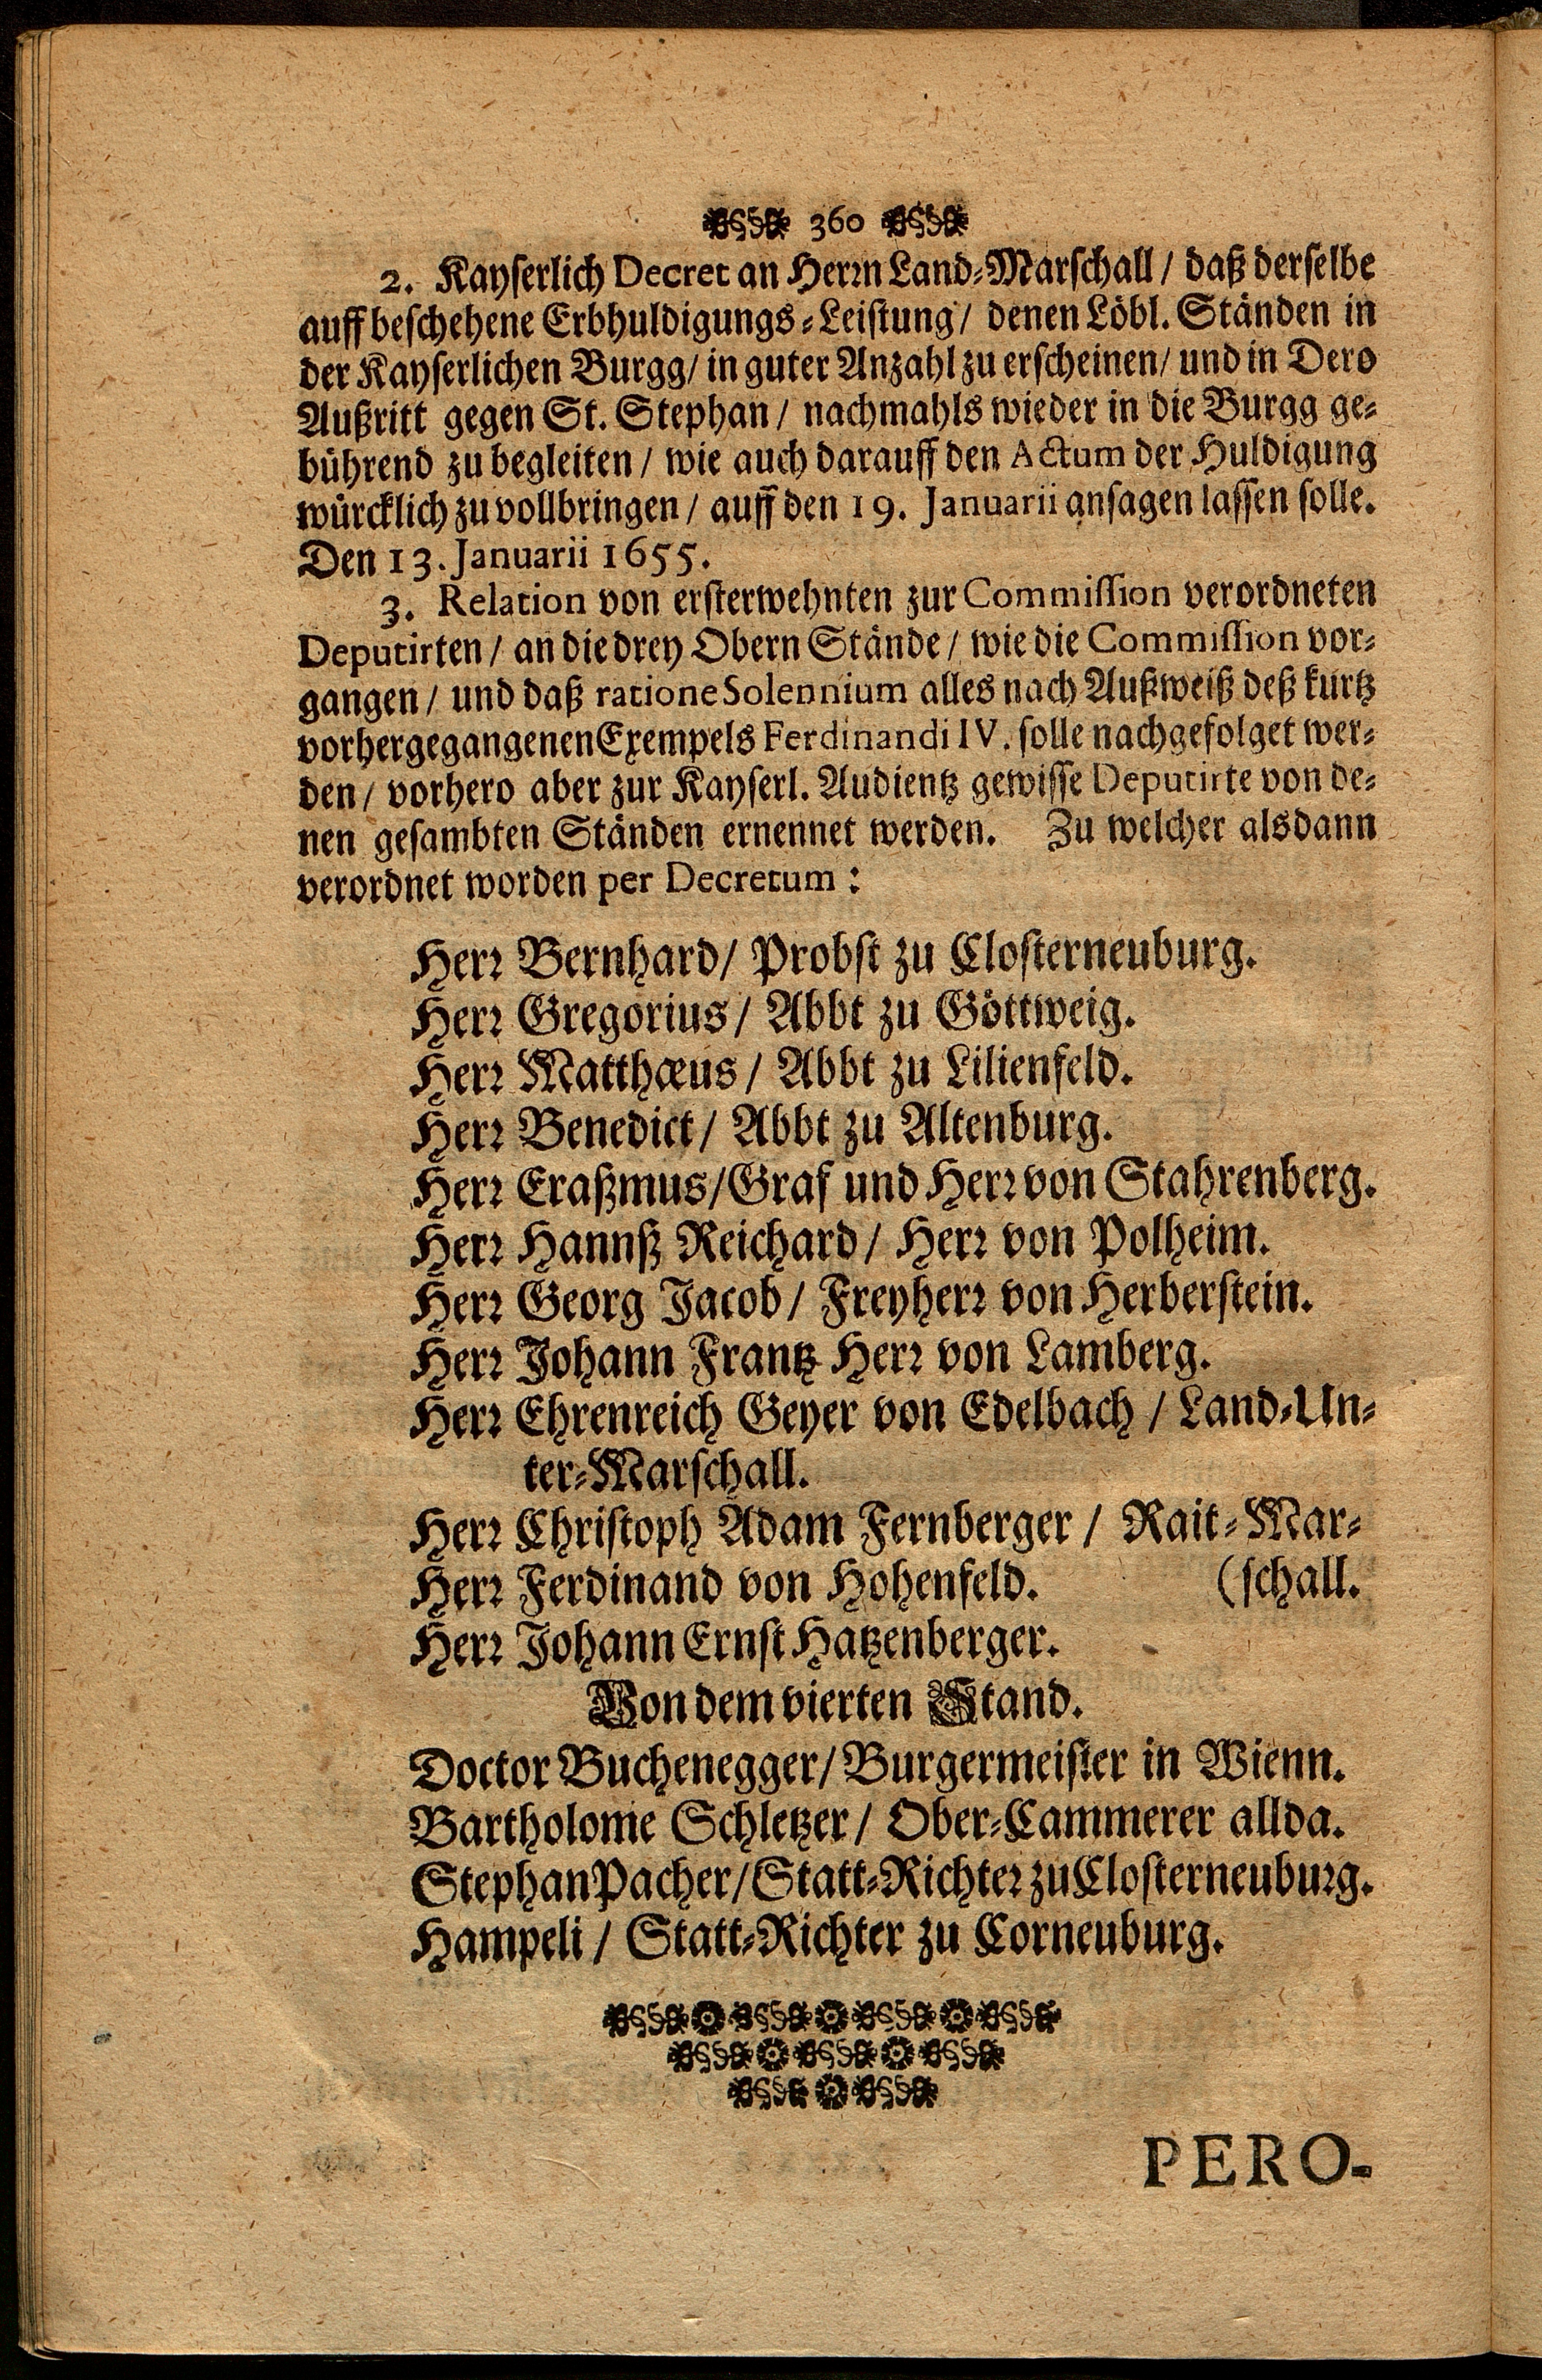 360
2. Kayserlich Decret an Herrn Land-Marschall / daß derselbe
auff beschehene Erbhuldigungs-Leistung / denen Löbl. Ständen in
der Kayserlichen Burgg / in guter Anzahl zu erscheinen / und in Dero
Außritt gegen St. Stephan / nachmahls wieder in die Burgg ge-
bührend zu begleiten / wie auch darauff den Actum der Huldigung
würcklich zu vollbringen / auff den 19. Januarii ansagen lassen solle.
Den 13. Januarii 1655.
3. Relation von ersterwehnten zur Commission verordneten
Deputirten / an die drey Obern Stände / wie die Commission vor-
gangen / und daß ratione Solennium alles nach Außweiß deß kurtz
vorhergegangenen Exempels Ferdinandi IV. solle nachgefolget wer-
den / vorhero aber zur Kayserl. Audientz gewisse Deputirte von de-
nen gesambten Ständen ernennet werden. Zu welcher alsdann
verordnet worden per Decretum :
Herr Bernhard / Probst zu Closterneuburg.
Herr Gregorius / Abbt zu Göttweig.
Herr Matthæus / Abbt zu Lilienfeld.
Herr Benedict / Abbt zu Altenburg.
Herr Eraßmus / Graf und Herr von Stahrenberg.
Herr Hannß Reichard / Herr von Polheim.
Herr Georg Jacob / Freyherr von Herberstein.
Herr Johann Frantz Herr von Lamberg.
Herr Ehrenreich Geyer von Edelbach / Land-Un-
ter-Marschall.
Herr Christoph Adam Fernberger / Rait-Mar-
Herr Ferdinand von Hohenfeld. (schall.
Herr Johann Ernst Hatzenberger.
Von dem vierten Stand.
Doctor Buchenegger / Burgermeister in Wienn.
Bartholome Schletzer / Ober-Cammerer allda.
Stephan Pacher / Statt-Richter zu Closterneuburg.
Hampeli / Statt-Richter zu Corneuburg.
PERO-